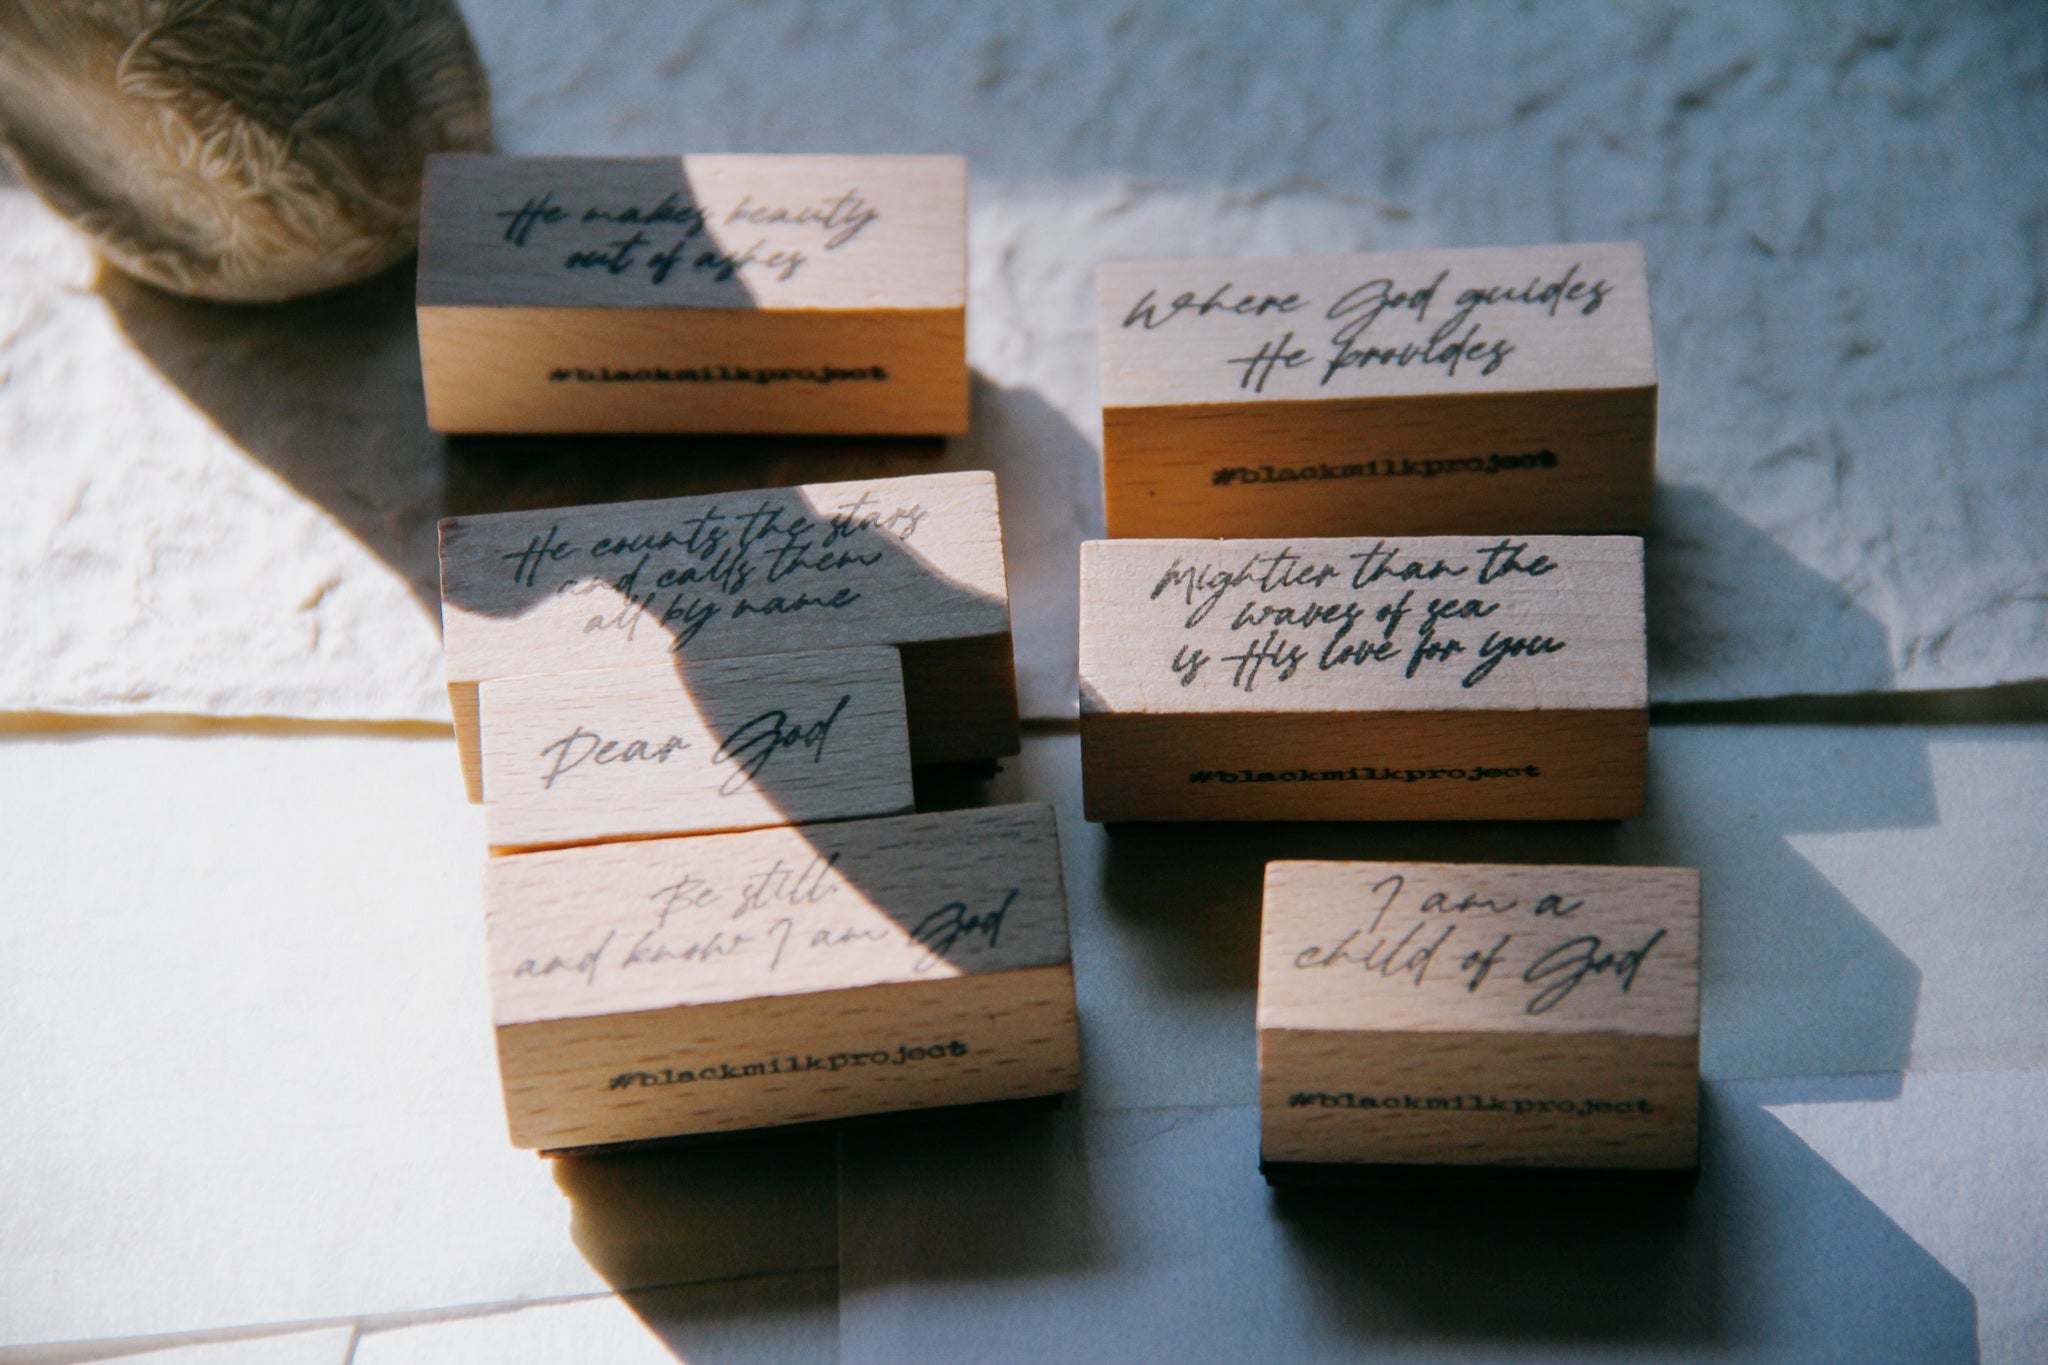 He makes beauty
out of ashes
#blackmilkproject
Where God guides
He provides
#blackmilkproject
He counts the stars
and calls them
all by name
Mightier than the
waves of sea
is His love for you
#blackmilkproject
Dear God
Be still
and know I am God
#blackmilkproject
I am a
child of God
#blackmilkproject